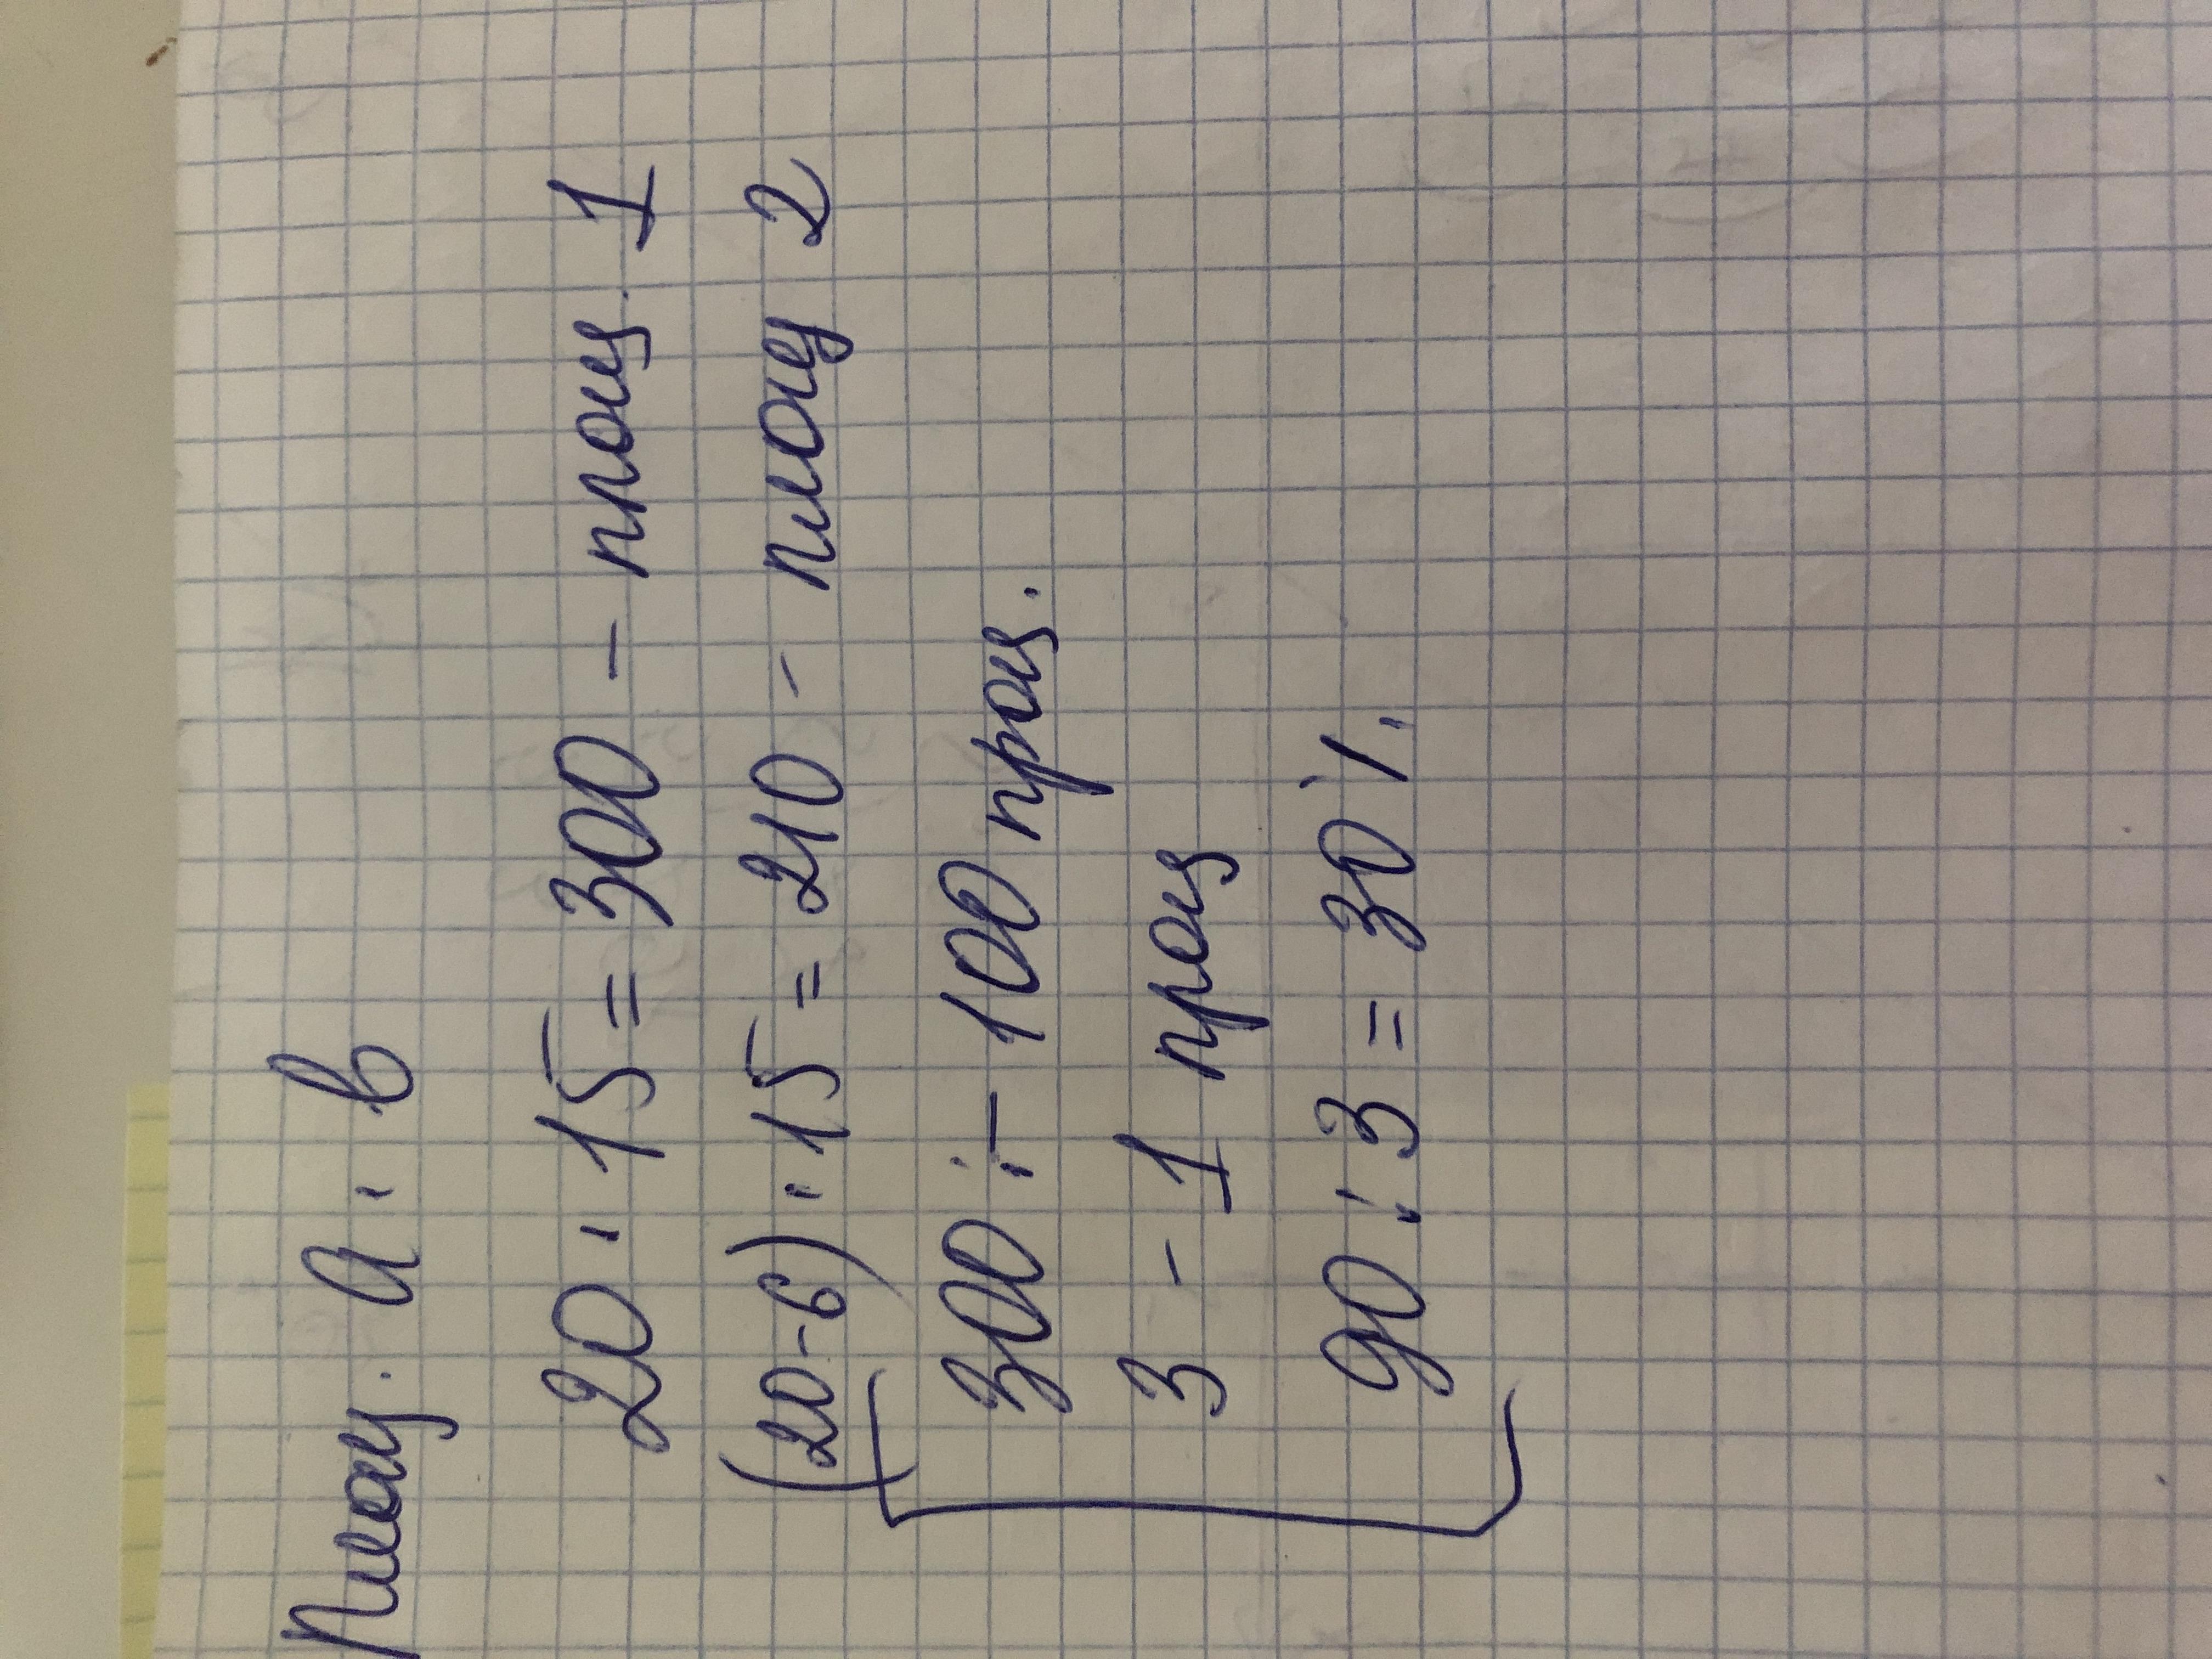 Площ. a · b
20 · 15 = 300 – площ. 1
(20-6) · 15 = 210 - площ 2
300 :– 100 проц.
3 - 1 проц
90 : 3 = 30 %